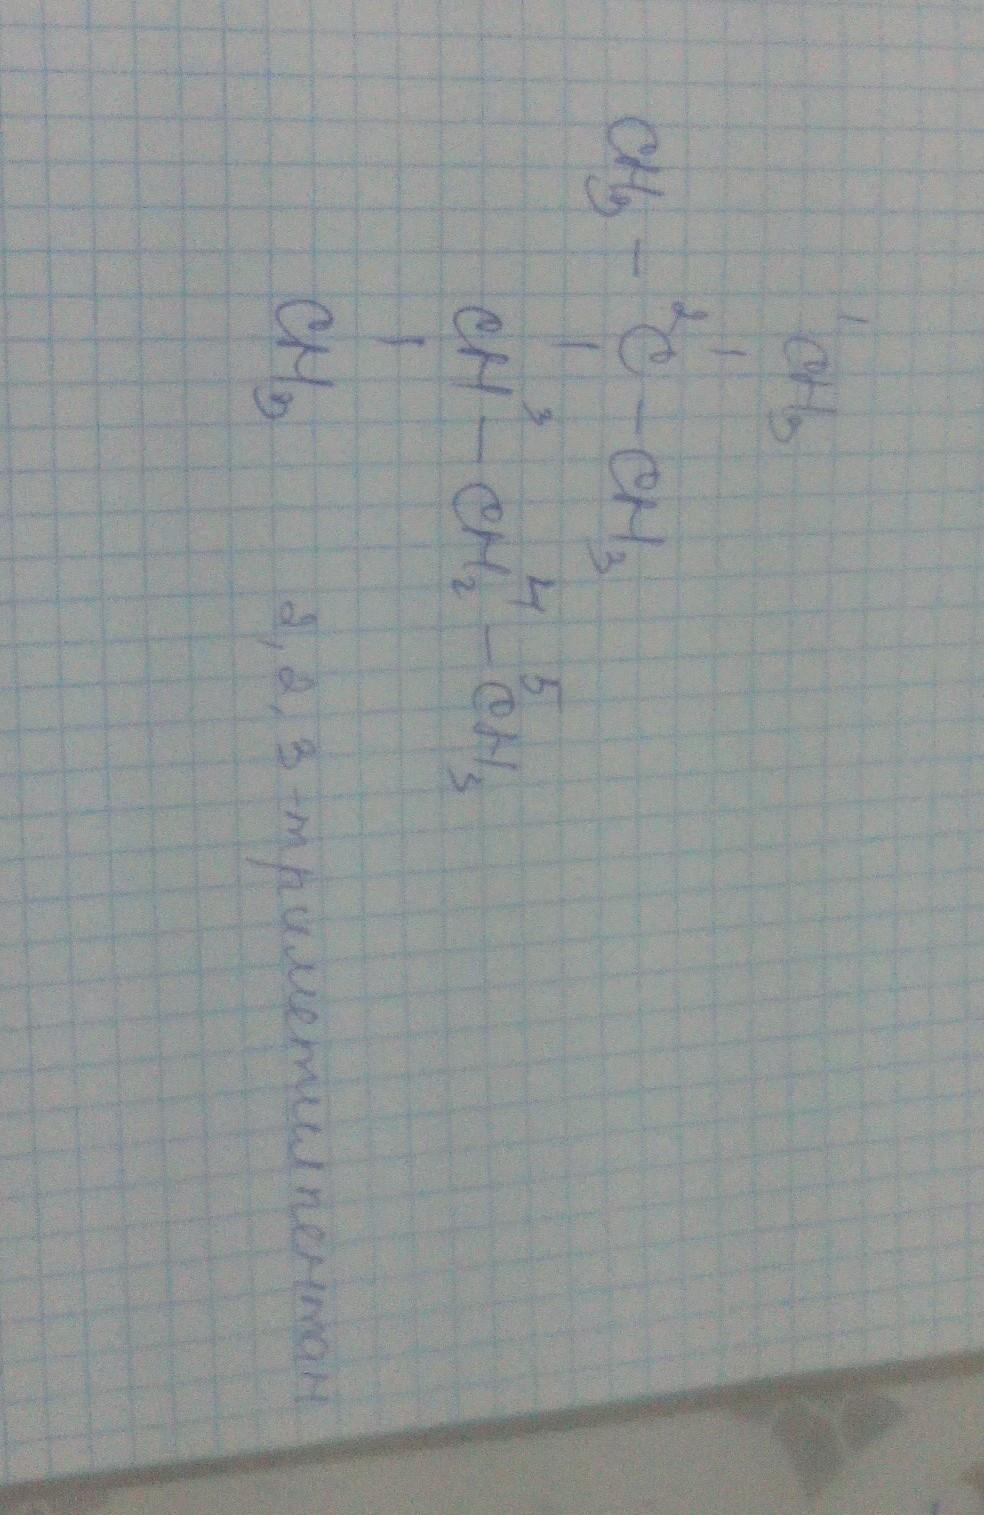 1
CH3
|
CH3 – 2C – CH3
|
CH3 – CH2 4 – CH3 5
|
CH3
2,2,3-триметилпентан